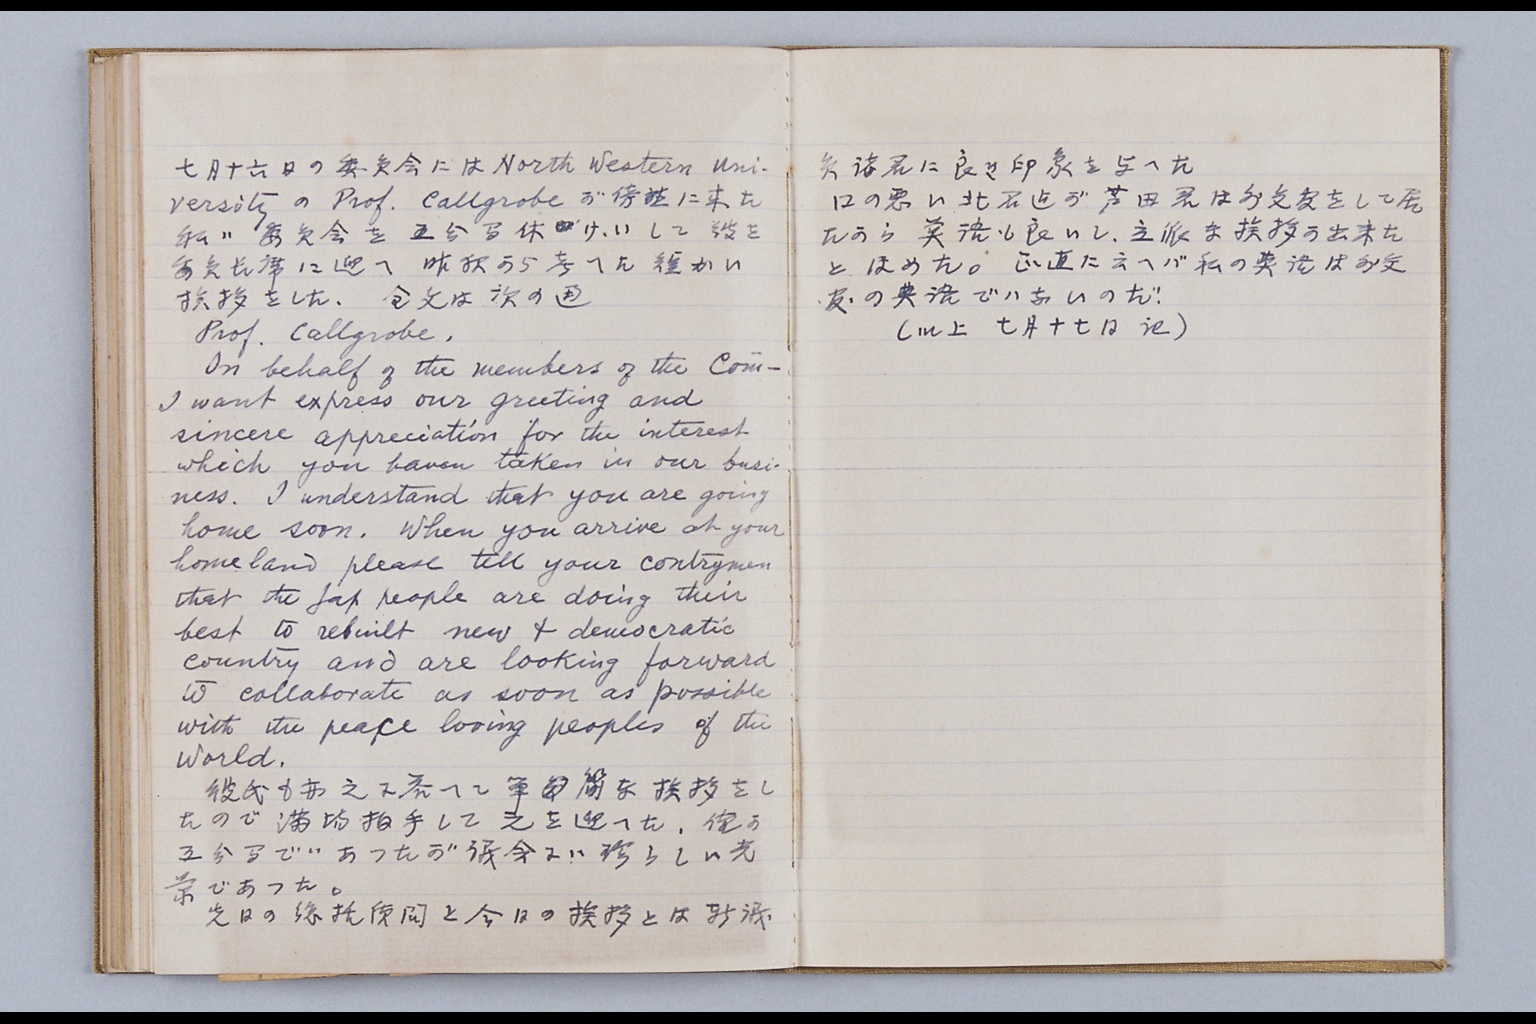 七月十六日の委員会には North Western Uni-
versity の Prof. Callgrobe が傍聴に来た
私ハ委員会を五分写休けいして彼を
委員長席に迎へ昨夜から考へた短かい
挨拶をした、全文は次の通
Prof. Callgrobe,
On behalf of the members of the Com̄-
I want express our greeting and
sincere appreciation for the interest
which you haven taken in our busi-
ness. I understand that you are going
home soon. When you arrive at your
homeland please tell your contrymen
that the Jap people are doing their
best to rebuilt new & democratic
country and are looking forward
to collaborate as soon as possible
with the peace loving peoples of the
World.
彼氏も亦之ニ答へて簡な挨拶をし
たので満場拍手して之を迎へた、僅か
五分写でハあつたが議会ニハ珍らしい光
景であつた。
先日の総括質問と今日の挨拶とは新議
員諸君に良き印象を与へた
口の悪い北君迄が芦田君は外交官をして居
たから英語も良いし、立派な挨拶が出来た
とほめた。正直に云へバ私の英語は外交
官の英語でハないのだ!
(以上 七月十七日 記)